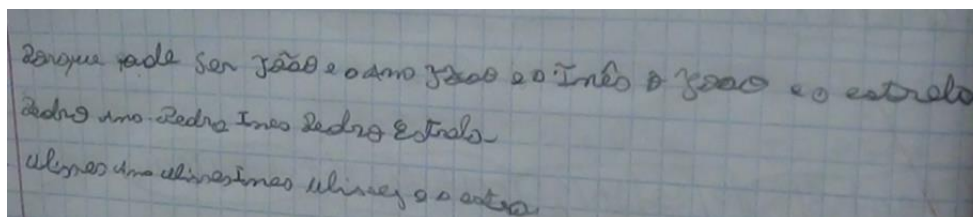 Porque pode ser João e o Ano João e o Inês o João e o estrelo
Pedro Ano. Pedro Ines Pedro Estrelo
Ulisses Ano Ulisses Ines Ulisses e o estre